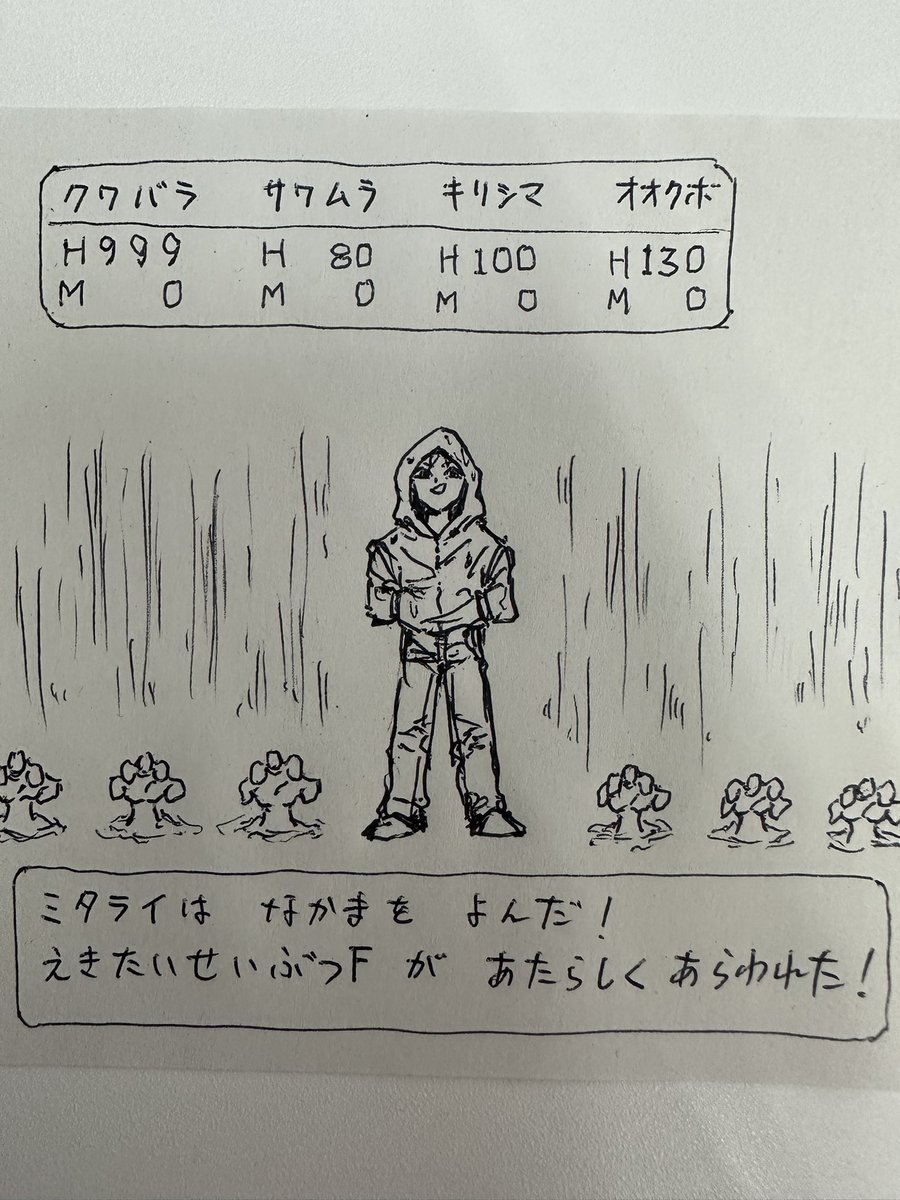 クワバラ サワムラ キリシマ オオクボ
H999 H 80 H100 H130
M 0 M 0 M 0 M 0
ミタライは なかまを よんだ!
えきたいせいぶつF が あたらしく あらわれた!